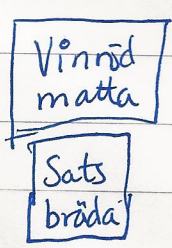 Vinröd
matta
Sats
bräda